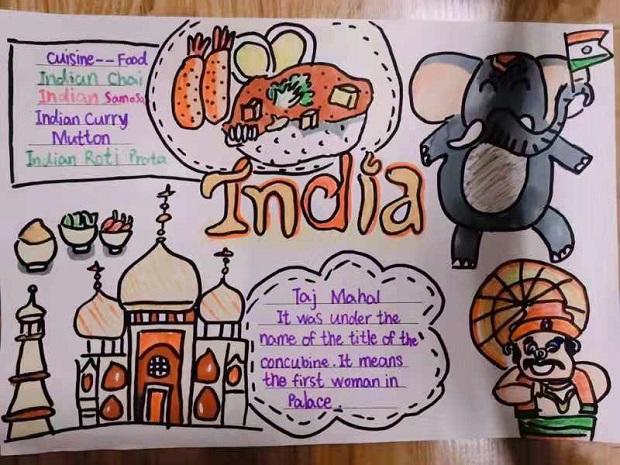 Cuisine--Food
Indian Chai
Indian Samosa
Indian Curry
Mutton
Indian Roti Prata
India
Taj Mahal
It was under the
name of the title of the
concubine. It means
the first woman in
Palace.